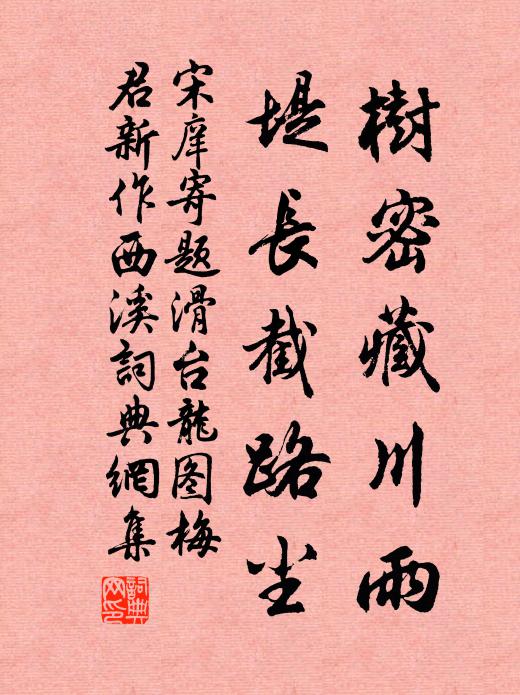 樹密藏川雨
堤長截路尘
宋庠寄題滑台龍图梅
君新作西溪詞典網集
詞典网印